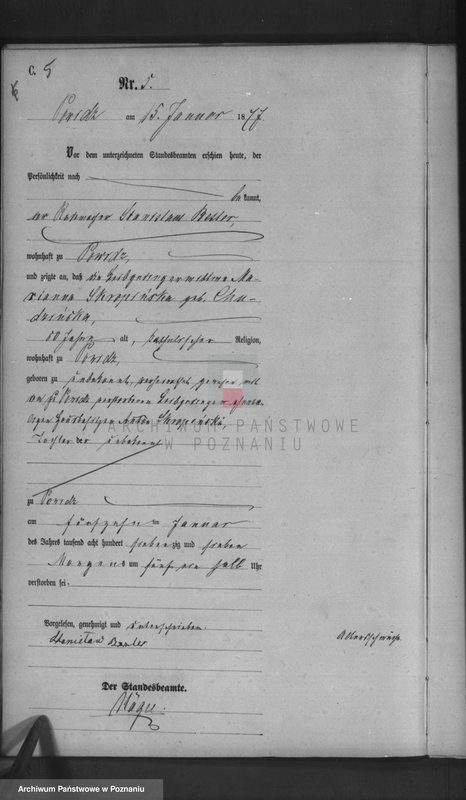 C. 5
Nr. 5.
Powidz am 15. Januar 1877
Vor dem unterzeichneten Standesbeamten erschien heute, der
Persönlichkeit nach
bekannt,
der Stanislaus
wohnhaft zu Powidz,
und zeigte an, daß die Leibgedingerwittwe Ma-
rianna Skropińska geb. Chu-
dzińska,
80 Jahre alt, katholischer Religion,
wohnhaft zu Powidz,
geboren zu unbekannt, verheirathet gewesen mit
dem zu Powidz verstorbenen Leibgedinger
Skropiński,
Tochter der unbekannt
zu Powidz
am fünfzehn ten Januar
des Jahres tausend acht hundert siebenzig und sieben
Morgens um fünf ein halb Uhr
verstorben sei.
Vorgelesen, genehmigt und unterschrieben.
Stanislaw
Altersschwäche.
Der Standesbeamte.
ARCHIWUM PAŃSTWOWE
W POZNANIU
Archiwum Państwowe w Poznaniu